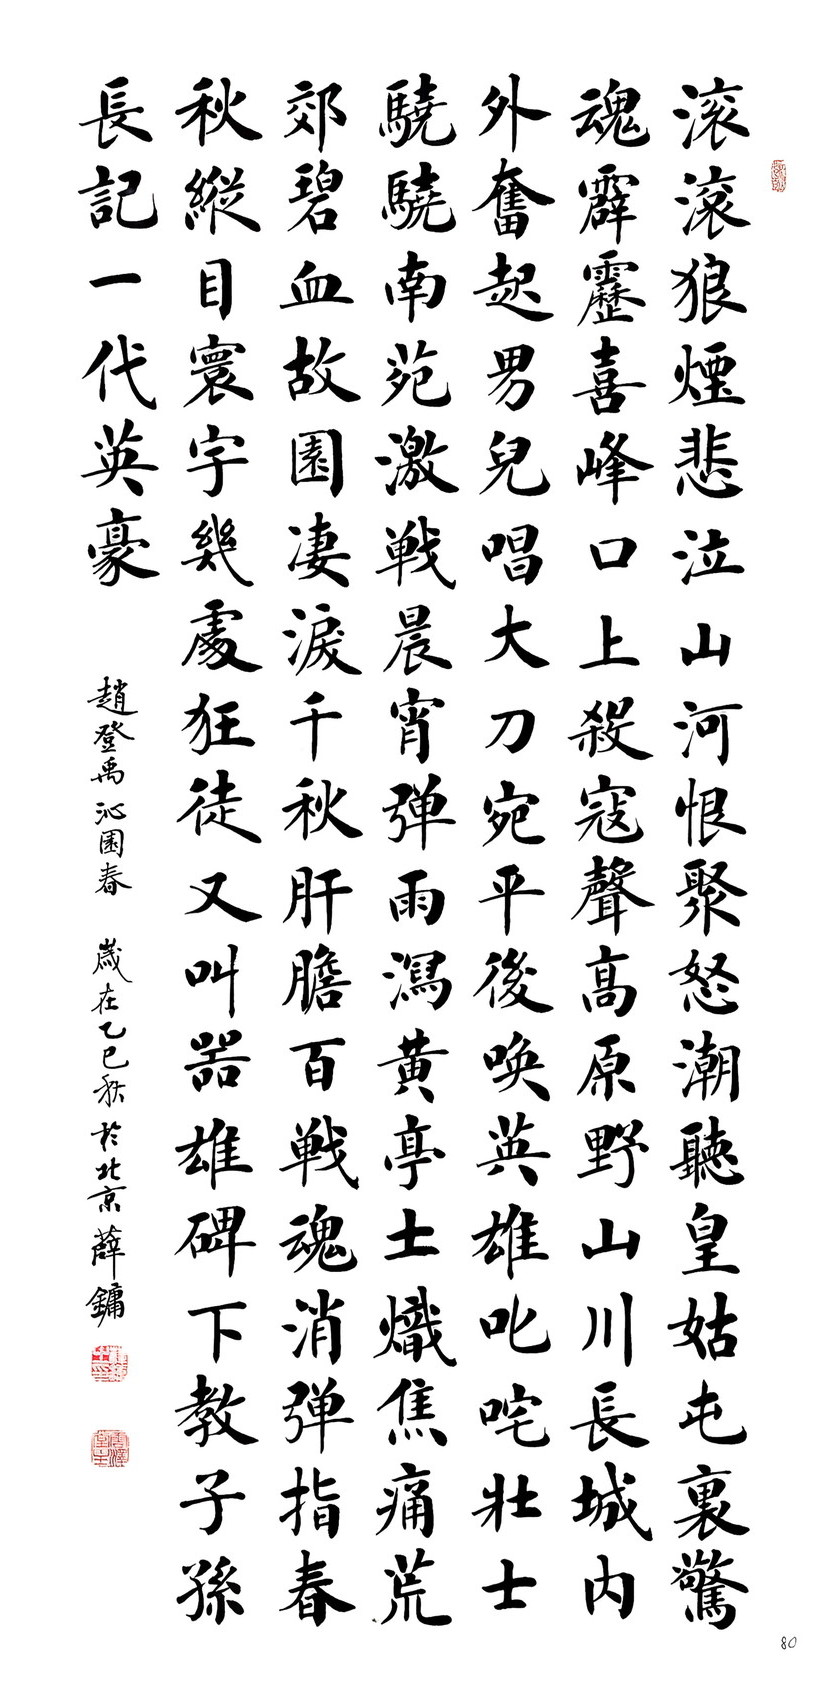 滚滚狼煙悲泣山河恨聚怒潮聽皇姑屯裏驚
魂霹靂喜峰口上殺寇聲高原野山川長城内
外奮起男兒唱大刀宛平後唤英雄叱咤壯士
驍驍南苑激戦晨宵弹雨瀉黄亭士熾焦痛荒
郊碧血故園凄淚千秋肝膽百戦魂消弹指春
秋縱目寰宇幾處狂徒又叫嚣雄碑下教子孫
長記一代英豪
趙登禹 沁園春 歲在乙巳秋於北京薛鏞
80